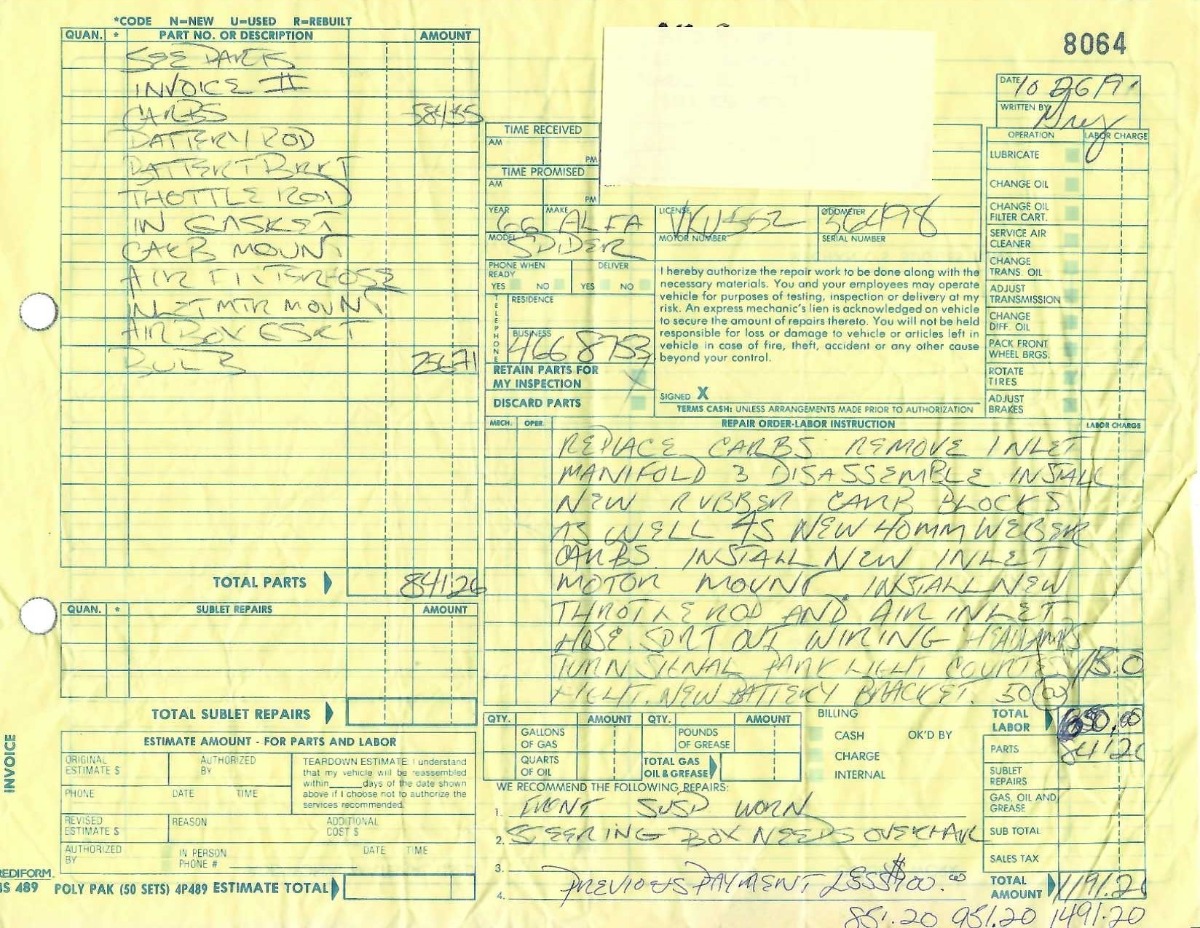 *CODE N=NEW U=USED R=REBUILT
QUAN. * PART NO. OR DESCRIPTION AMOUNT
SEE PARTS
INVOICE II
CARBS 584.55
BATTERY ROD
BATTERY BRKT
THOTTLE ROD
IN GASKET
CARB MOUNT
AIR FILTER HOSE
INLET MTR MOUNT
AIR BOX GSKT
BULB 256.71
TOTAL PARTS 841.26
QUAN. * SUBLET REPAIRS AMOUNT
TOTAL SUBLET REPAIRS
ESTIMATE AMOUNT - FOR PARTS AND LABOR
ORIGINAL ESTIMATE $ AUTHORIZED BY
PHONE DATE TIME
TEARDOWN ESTIMATE. I understand
that my vehicle will be reassembled
within ____ days of the date shown
above if I choose not to authorize the
services recommended.
REVISED ESTIMATE $ REASON ADDITIONAL COST $
AUTHORIZED BY IN PERSON PHONE # DATE TIME
INVOICE
REDIFORM
4P489 POLY PAK (50 SETS) 4P489 ESTIMATE TOTAL
8064
DATE 10 26 9
WRITTEN BY Greg
TIME RECEIVED
AM PM
TIME PROMISED
AM PM
YEAR 66 MAKE ALFA LICENSE VKU552 ODOMETER 36498
MODEL SPIDER MOTOR NUMBER SERIAL NUMBER
PHONE WHEN READY DELIVER
YES NO YES NO
TELEPHONE
RESIDENCE
BUSINESS 466 8753
RETAIN PARTS FOR MY INSPECTION X
DISCARD PARTS
I hereby authorize the repair work to be done along with the
necessary materials. You and your employees may operate
vehicle for purposes of testing, inspection or delivery at my
risk. An express mechanic's lien is acknowledged on vehicle
to secure the amount of repairs thereto. You will not be held
responsible for loss or damage to vehicle or articles left in
vehicle in case of fire, theft, accident or any other cause
beyond your control.
SIGNED X
TERMS CASH: UNLESS ARRANGEMENTS MADE PRIOR TO AUTHORIZATION
OPERATION LABOR CHARGE
LUBRICATE
CHANGE OIL
CHANGE OIL FILTER CART.
SERVICE AIR CLEANER
CHANGE TRANS. OIL
ADJUST TRANSMISSION
CHANGE DIFF. OIL
PACK FRONT WHEEL BRGS.
ROTATE TIRES
ADJUST BRAKES
MECH. OPER. REPAIR ORDER-LABOR INSTRUCTION LABOR CHARGE
REPLACE CARBS REMOVE INLET
MANIFOLD 3 DISASSEMBLE INSTALL
NEW RUBBER CARB BLOCKS
AS WELL AS NEW 40MM WEBER
CARBS INSTALL NEW INLET
MOTOR MOUNT INSTALL NEW
THROTLE ROD AND AIR INLET
HOSE SORT OUT WIRING HEADLAMPS
TURN SIGNAL PARK LIGHT
LIGHT. NEW BATTERY BRACKET. 50
QTY. AMOUNT QTY. AMOUNT
GALLONS OF GAS POUNDS OF GREASE
QUARTS OF OIL TOTAL GAS OIL & GREASE
BILLING
CASH OK'D BY
CHARGE
INTERNAL
TOTAL LABOR 650.00
PARTS 841.20
SUBLET REPAIRS
GAS, OIL AND GREASE
SUB TOTAL
SALES TAX
TOTAL AMOUNT 1191.20
WE RECOMMEND THE FOLLOWING REPAIRS:
1. FRONT SUSP WORN
2. STEERING BOX NEEDS OVERHAUL
3.
4. PREVIOUS PAYMENT LESS $
851.20 951.20 1491.20